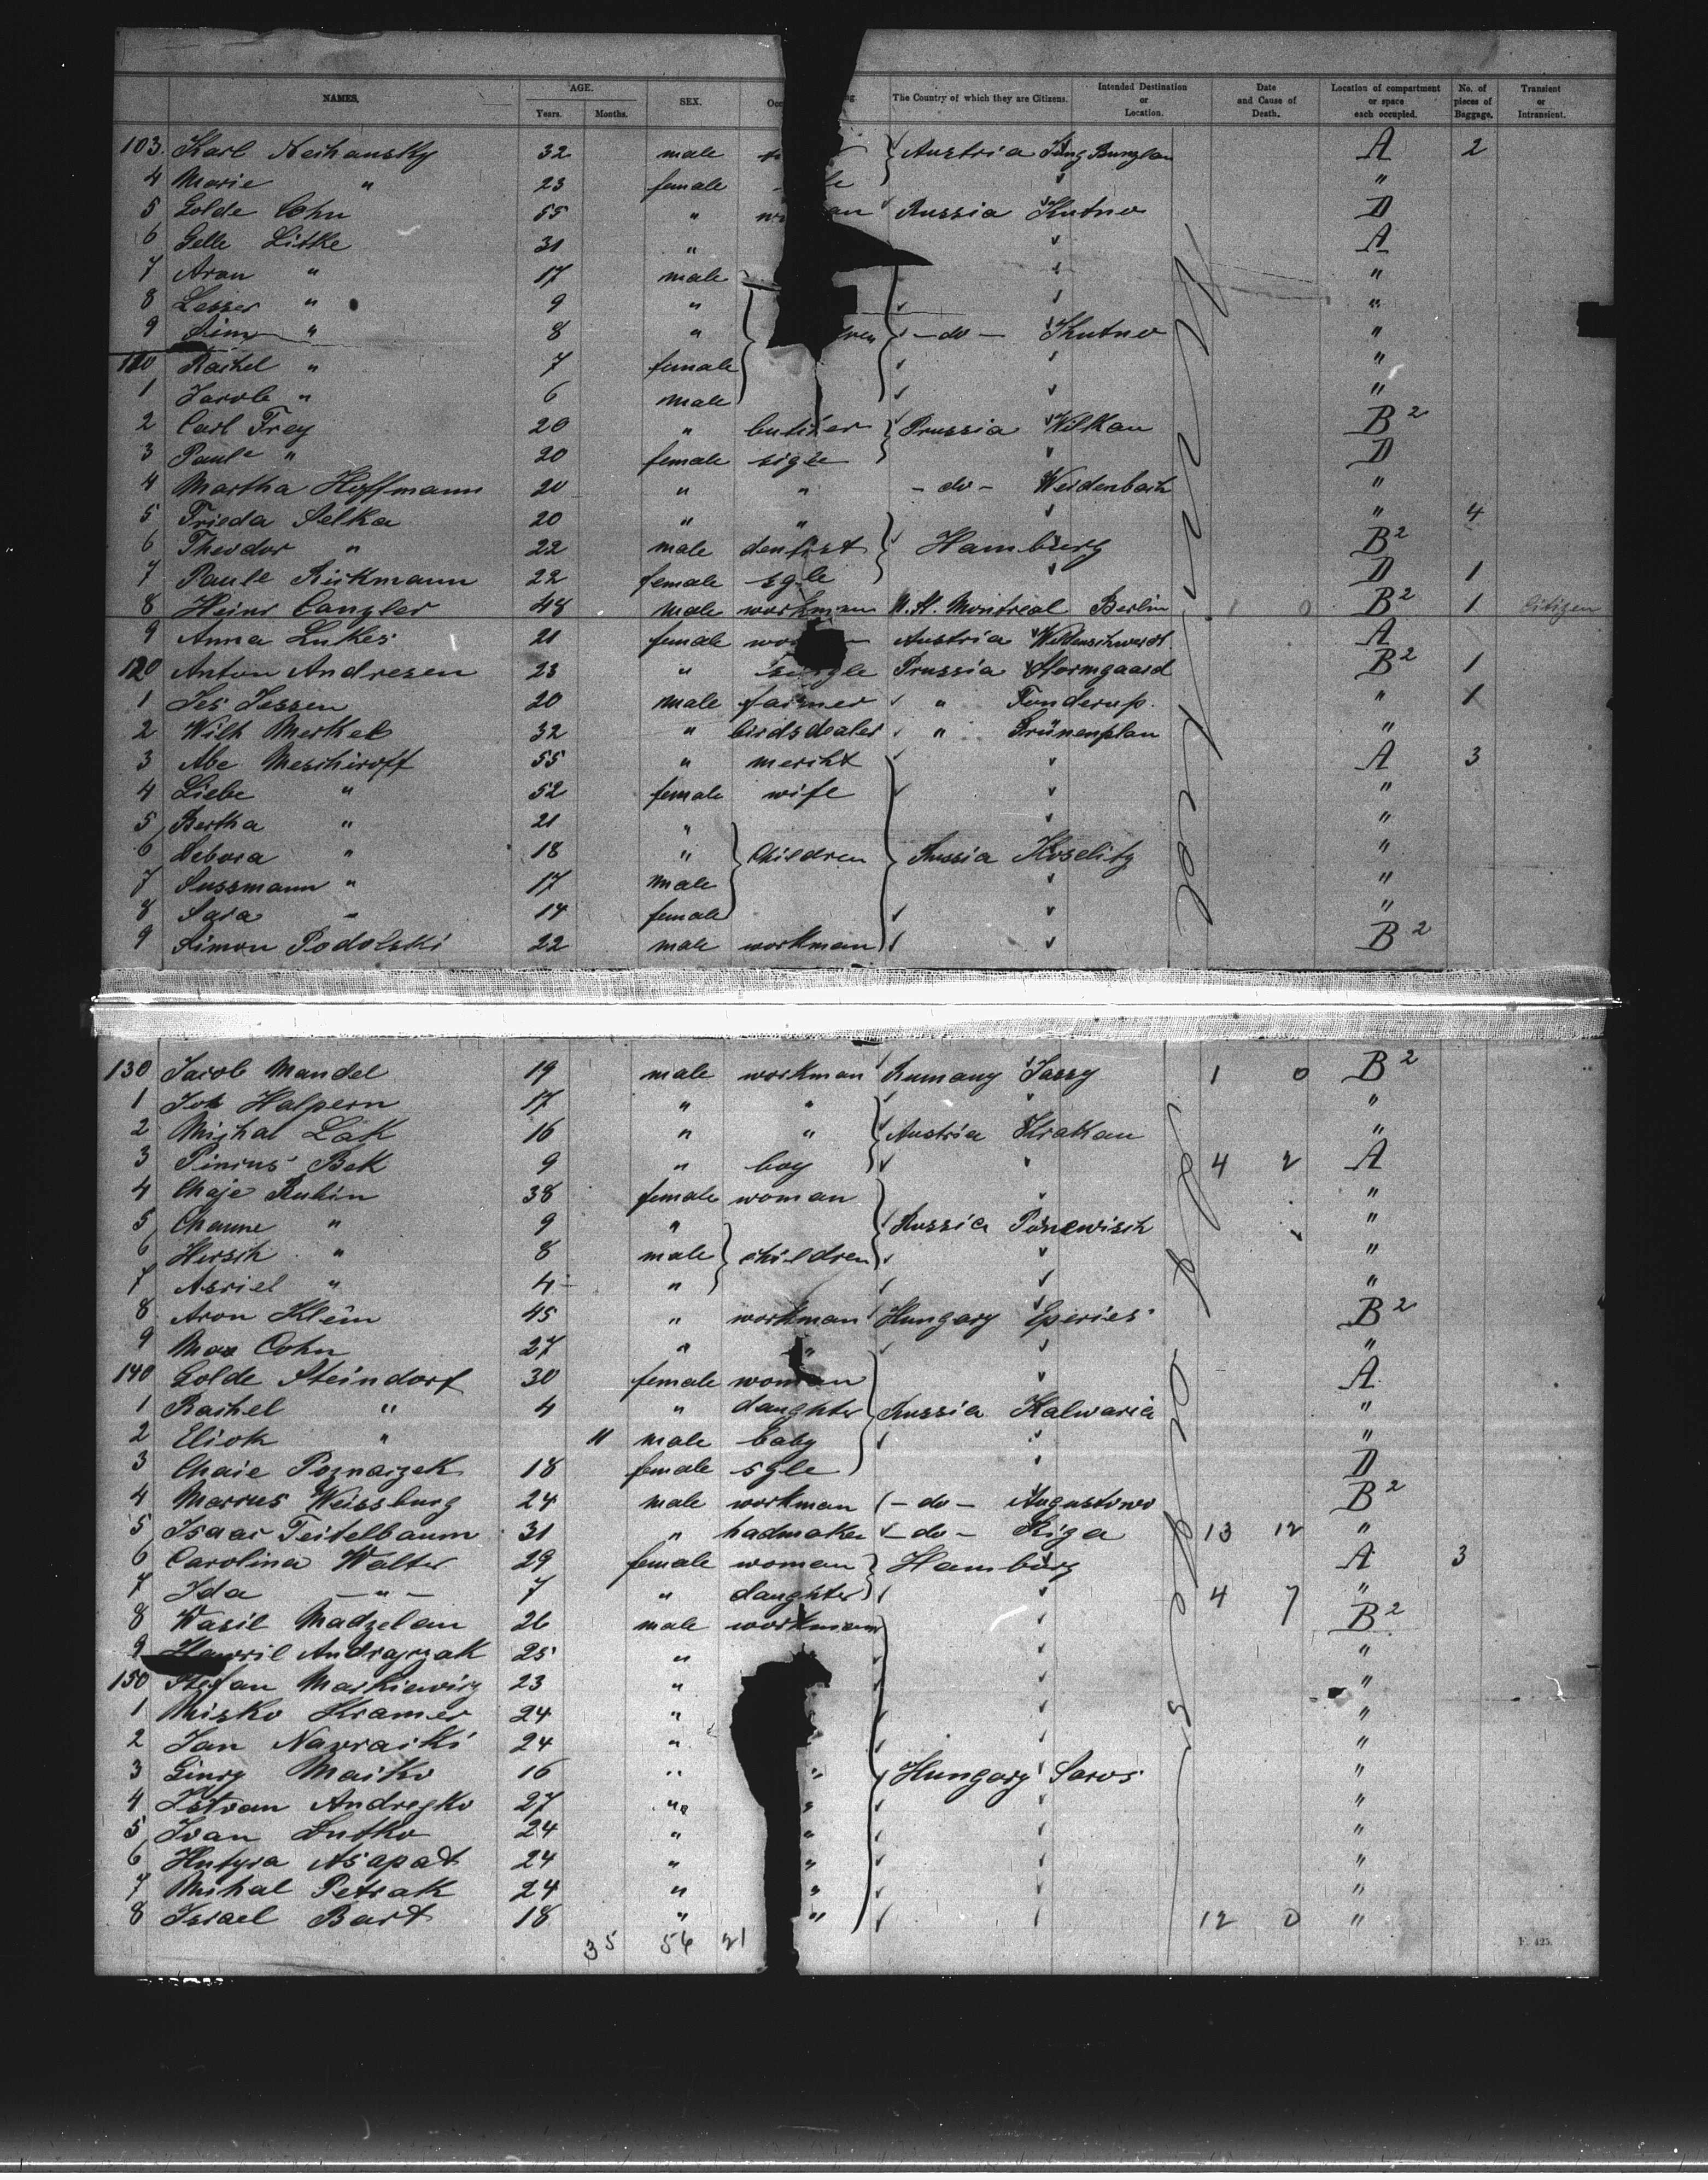 NAMES. AGE. Years. Months. SEX. The Country of which they are Citizens. Intended Destination or Location. Date and Cause of Death. Location of compartment or space each occupied. No. of pieces of Baggage. Transient or Intransient.
103. Karl Neihansky 32 male Austria Jung Bunzlau A 2
4 Marie " 23 female "
5 Golde Cohn 55 " Russia Kutno D
6 Gelle Litke 31 " A
7 Aron " 17 male "
8 Lesser " 9 " "
9 " 8 " -do- Kutno "
110 Rachel " 7 female "
1 Jacob " 6 male "
2 Carl Frey 20 " butcher Prussia Wilkau B2
3 Paule " 20 female sigle D
4 Martha Hoffmann 20 " " -do- Weidenbach "
5 Frieda Selka 20 " " " 4
6 Theodor " 22 male dentist Hamburg B2
7 Paule Rickmann 22 female sgle D 1
8 Heinr Canzler 48 male workman Montreal Berlin 1 0 B2 1 Citizen
9 Anna Lukes 21 female Austria Wildenschwerdt A
120 Anton Andresen 23 " single Prussia Stormgaard B2 1
1 Jes Jessen 20 male farmer " Tonderup. " 1
2 Wilh Merkel 32 " birdsdealer " Grünenplan "
3 Abe Meschiroff 55 " mercht A 3
4 Liebe " 52 female wife "
5 Bertha " 21 " "
6 Debora " 18 " Children Russia Koselitz "
7 Sussmann " 17 male "
8 Sara " 14 female "
9 Simon Podolski 22 male workman B2
130 Jacob Mandel 19 male workman Rumany Jassy 1 0 B2
1 Halpern 17 " " "
2 Michal Lak 16 " " Austria Krakau "
3 Pincus Bek 9 " boy 4 2 A
4 Chaje Rubin 38 female woman "
5 Channe " 9 " Russia Ponewisch "
6 Hersch " 8 male children "
7 Asriel " 4 " "
8 Aron Klein 45 " workman Hungary Eperies B2
9 Max Cohn 27 " " "
140 Golde Steindorf 30 female woman A
1 Rachel " 4 " daughter Russia Kalwaria "
2 Eliok " 11 male baby "
3 Chaie Poznaizek 18 female sgle D
4 Marcus Weissburg 24 male workman -do- Augustowo B2
5 Isaac Teitelbaum 31 " hadmaker -do- Riga 13 12 "
6 Carolina Walter 29 female woman Hamburg A 3
7 Ida -"- 7 " daughter 4 7 "
8 Wasil Madzelan 26 male workmann B2
9 Andrajczak 25 " "
150 Stefan Markiewicz 23 " "
1 Misko Kramer 24 " "
2 Jan Navraiki 24 " "
3 Maiko 16 " " Hungary Saros "
4 Istvan Andregko 27 " " "
5 Ivan Dutko 24 " " "
6 Hutyra Asapat 24 " " "
7 Mihal Petrak 24 " " "
8 Israel Bart 18 " " 12 0 "
35 56 21
F. 425.